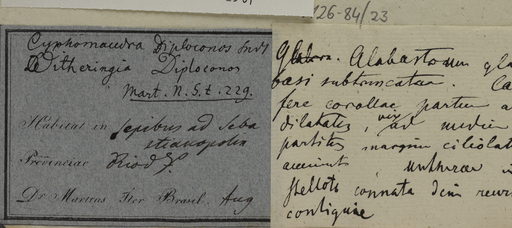 126-84/23
Cyphomandra Diploconos Sendt
Witheringia Diploconos
Mart. N. S. t. 229.
Habitat in sepibus ad Seba
stianopolin
Provinciae Rio d
Dr Martius Iter Brasil. Aug
Alabastrum gla
basi subtruncatum. Ca
fere corollae partem a
dilatatis, vix ad medium
partitis margine ciliolat
acuminat , antherae in
stellato connata dein recur
contiguae